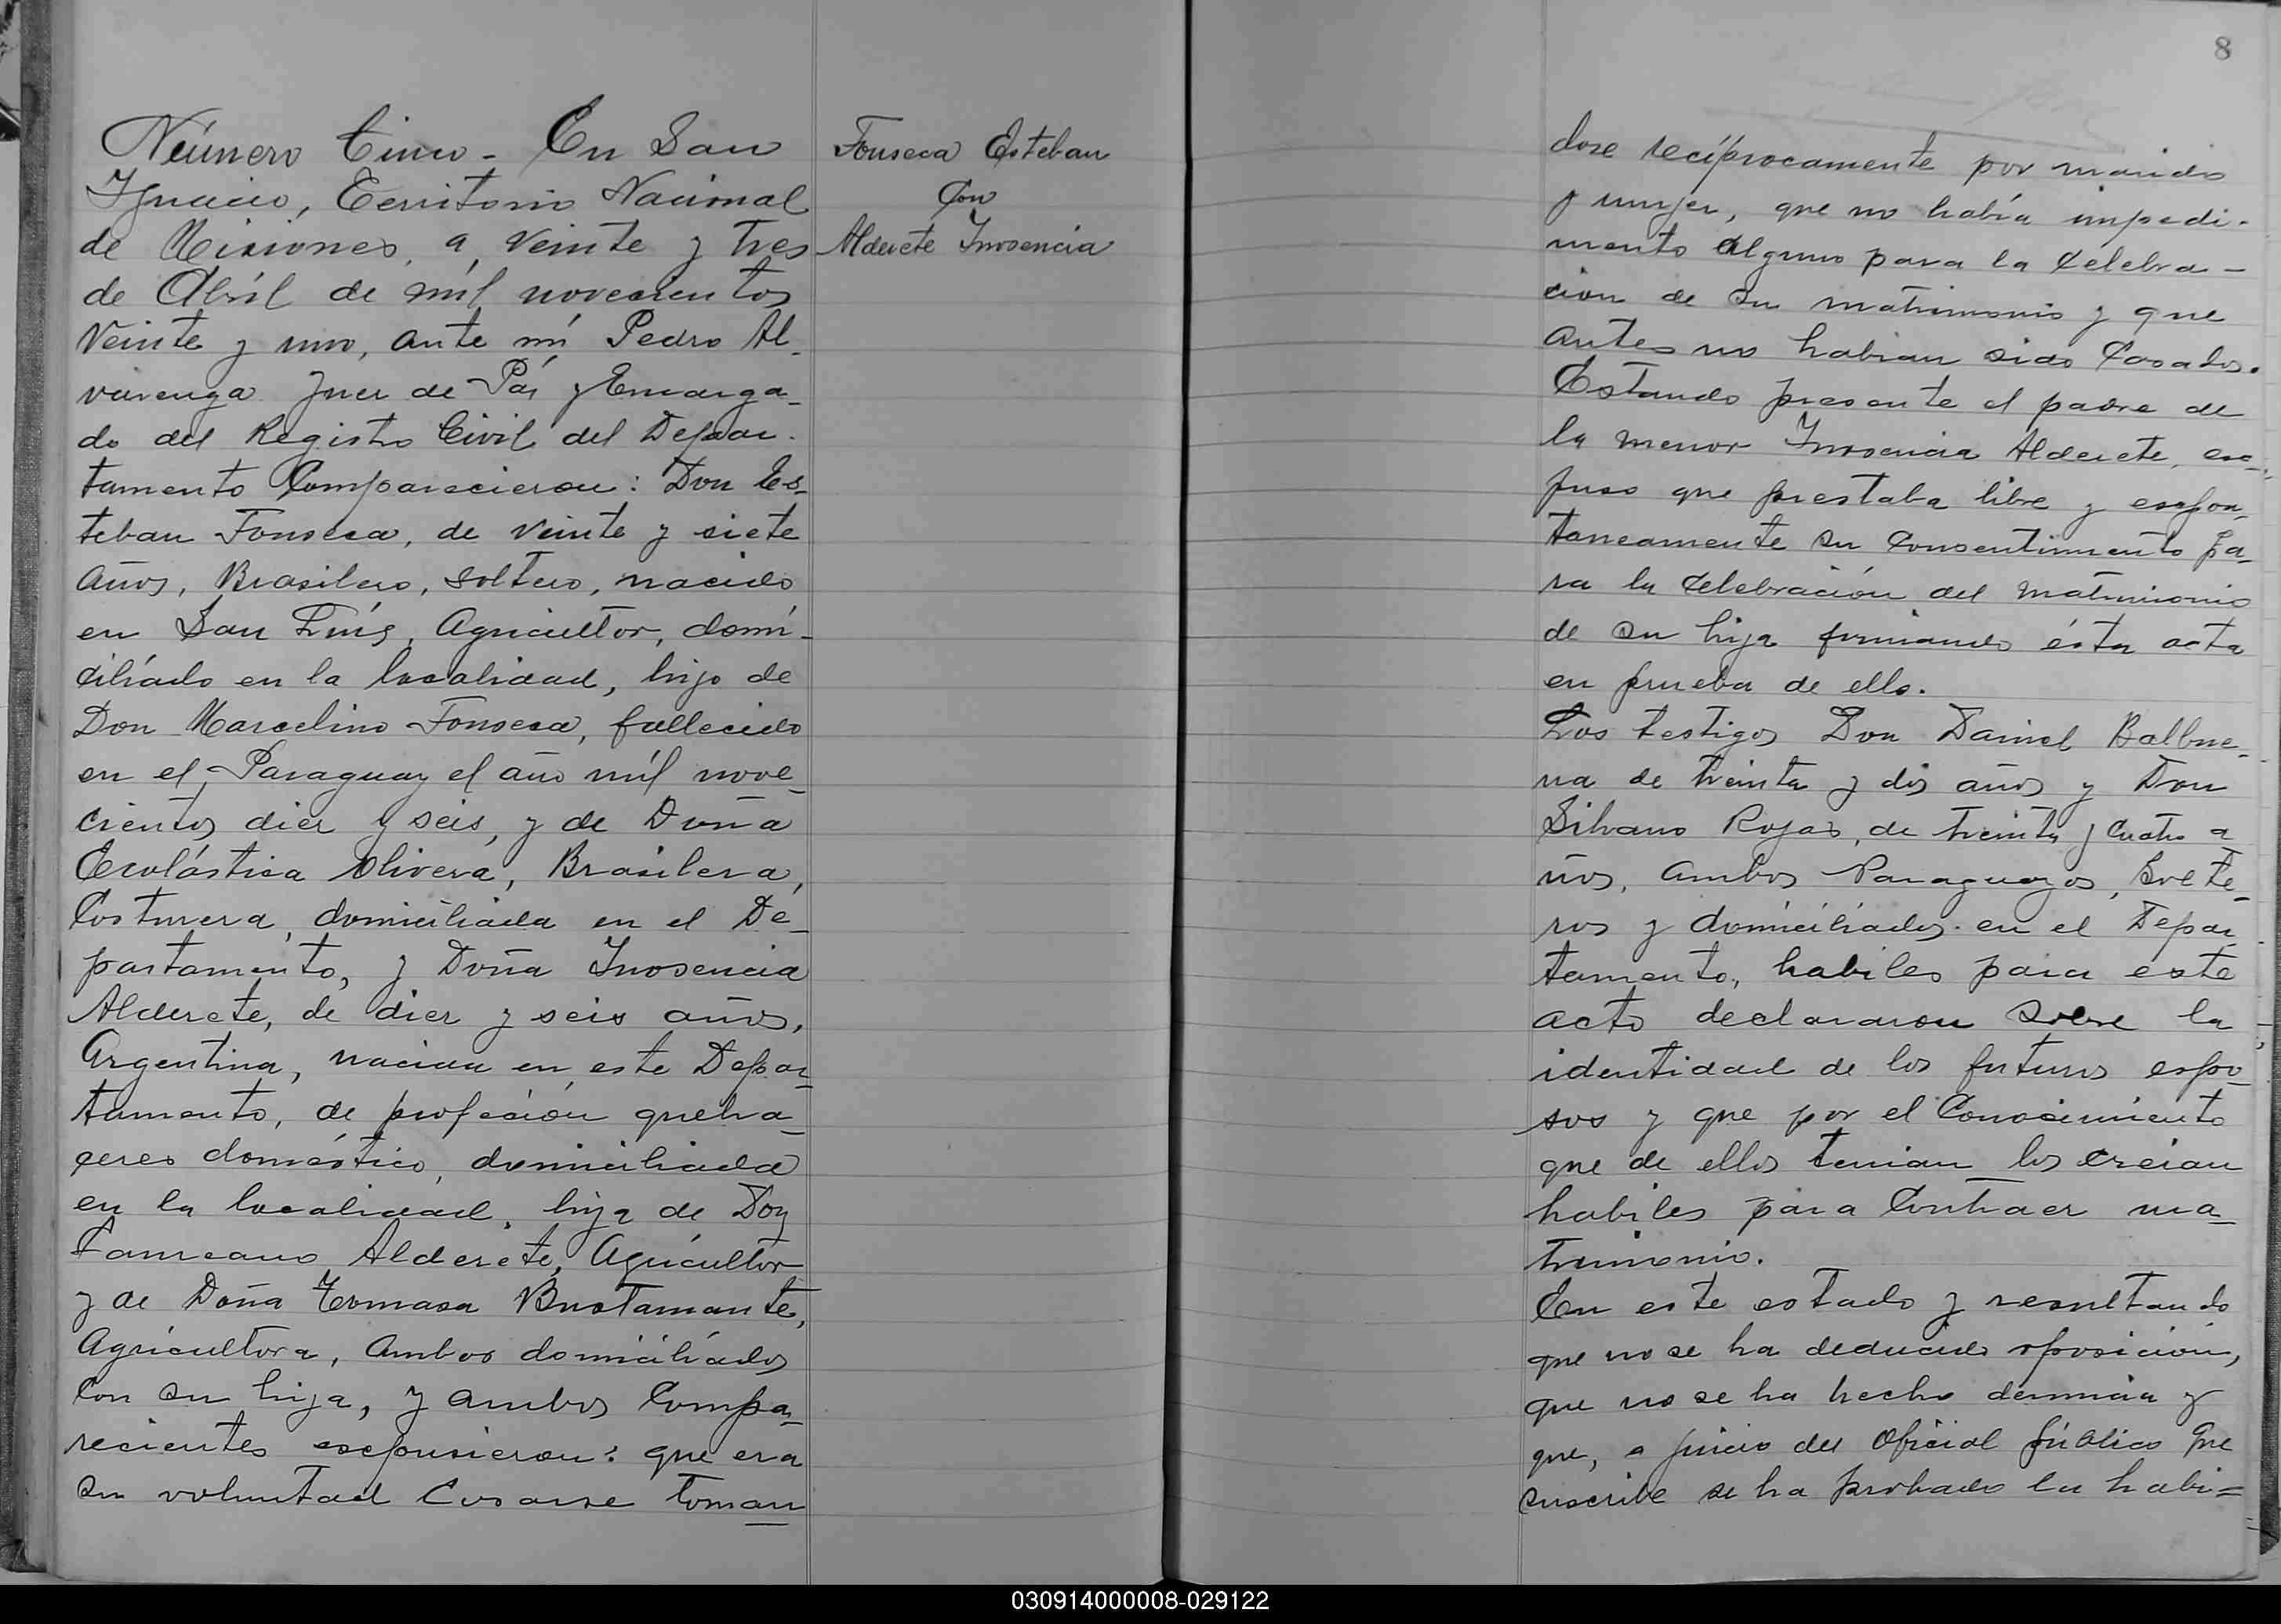 Número Cinco - En San
Ignacio, Territorio Nacional
de Misiones, a, veinte y tres
de Abríl de míl novecientos
veinte y uno, ante mí Pedro Al-
varenga Juez de Páz y Encarga-
do del Registro Civil del Depar-
tamento Comparecieron: Don Es-
teban Fonseca, de veinte y siete
años, Brasilero, soltero, nacido
en San Luís, Agricultor, domi-
ciliádo en la localidad, hijo de
Don Marcelino Fonseca, fallecido
en el Paraguay el año míl nove-
cientos diez y seis, y de Doña
Escolástica Olivera, Brasilera,
Costurera, domiciliada en el De-
partamento, y Doña Inosencia
Alderete, de diez y seis años,
Argentina, nacida en este Depar-
tamento, de profeción queha-
ceres doméstico, domiciliada
en la localidad, hija de Don
Alderete, Agricultor
y de Doña Tomasa Bustamante,
Agricultora, ambos domiciliádos
con su hija, y ambos Compa-
recientes esepusieron: que era
su voluntad Casarse toman
Fonseca Esteban
Con
Alderete Inosencia
8
dose recíprocamente por marido
y mujer, que no había impedi-
mento alguno para la celebra-
cion de su matrimonio y que
antes no habian sido Casados.
Estando presente el padre de
la menor Inosencia Alderete, esc-
puso que prestaba libre y espon-
taneamente su Consentimiento pa-
ra la celebración del matrimonio
de su hija firmando ésta acta
en prueba de ello.
Los testigos Don Daniel Balbue-
na de treinta y dos años y Don
Silvano Rojas, de treinta y cuatro a
ños, ambos Paraguayos, Solte-
ros y domiciliádos en el Depar-
tamento, habiles para este
acto declararon sobre la
identidad de los futuros espo-
sos y que por el Conocimiento
que de ellos tenian los creian
habiles para Contraer ma-
trimonio.
En este estado y resultando
que no se ha deducido oposición,
que no se ha hecho denuncia y
que, a juicio del Oficial público que
suscribe se ha probado la habi=
030914000008-029122